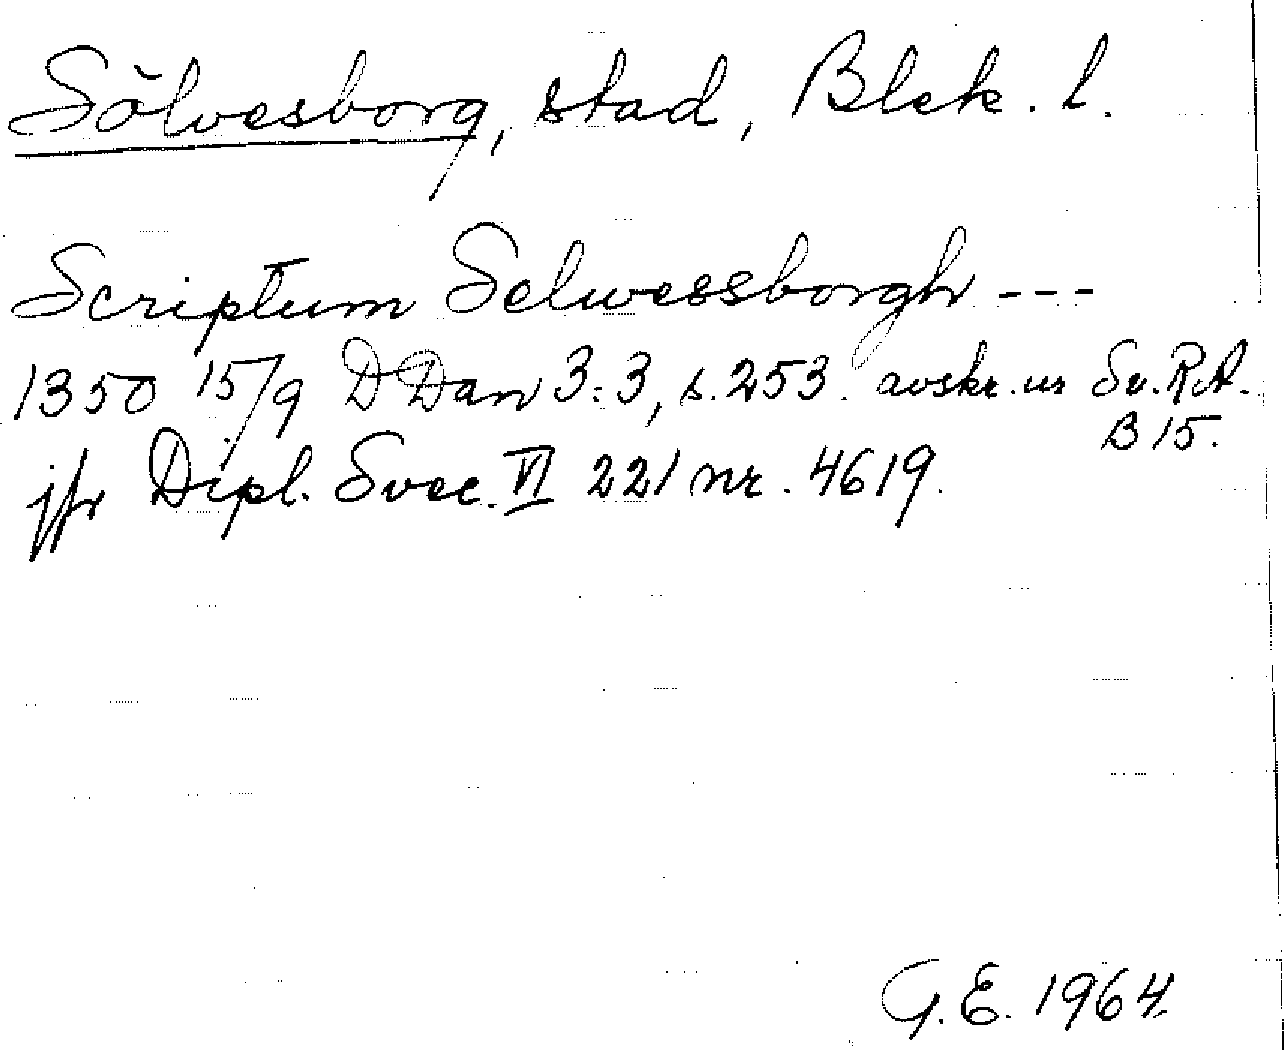 Sölvesborg, stad, Blek. l.
Scriptum Selwessborgh ---
1350 15/9 DDan 3:3, s. 253. avskr. ur Sv. R.A.
B 15.
jfr Dipl. Svec. VI 221 nr. 4619.
G.E. 1964